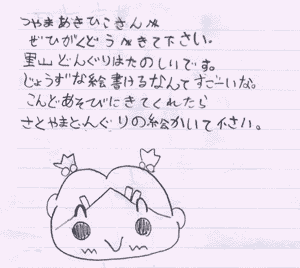 つやまあきひこさんが
ぜひがくどうがきて下さい。
里山どんぐりはたのしいです。
じょうずな絵書けるなんてすごーいな。
こんどあそびにきてくれたら
さとやまどんぐりの絵かいて下さい。